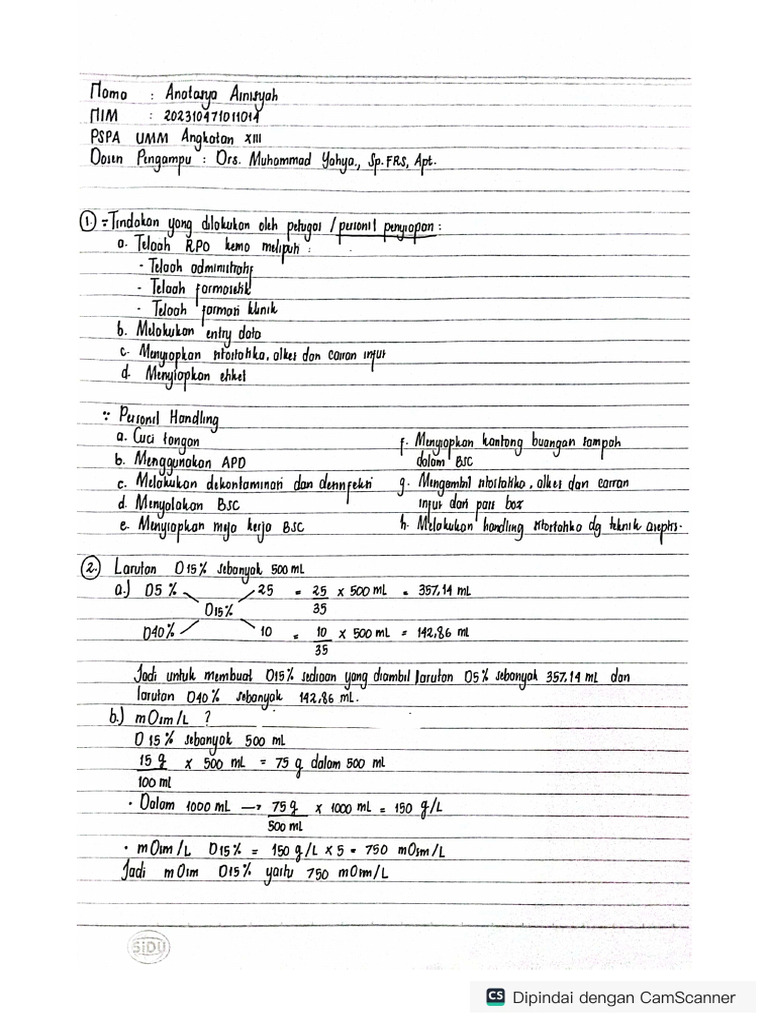 Nama : Anatasya Ainisyah
NIM : 202310471011014
PSPA UMM Angkatan XIII
Dosen Pengampu : Drs. Muhammad Yahya., Sp.FRS, Apt.
1. ∵ Tindakan yang dilakukan oleh petugas / personil penyiapan :
a. Telaah RPO kemo meliputi :
- Telaah administratif
- Telaah farmasetik
- Telaah farmasi klinik
b. Melakukan entry data
c. Menyiapkan sitostatika, alkes dan cairan infus
d. Menyiapkan etiket
∵ Personil Handling
a. Cuci tangan
b. Menggunakan APD
c. Melakukan dekontaminasi dan desinfeksi
d. Menyalakan BSC
e. Menyiapkan meja kerja BSC
f. Menyiapkan kantong buangan sampah
dalam BSC
g. Mengambil sitostatika, alkes dan cairan
infus dari pass box
h. Melakukan handling sitostatika dg teknik aseptis.
2. Larutan D15% sebanyak 500 mL
a.) D5% 25 = 25/35 x 500 mL = 357,14 mL
D15%
D40% 10 = 10/35 x 500 mL = 142,86 mL
Jadi untuk membuat D15% sediaan yang diambil larutan D5% sebanyak 357,14 mL dan
larutan D40% sebanyak 142,86 mL.
b.) mOsm/L ?
D 15% sebanyak 500 mL
15 g/100 ml x 500 mL = 75 g dalam 500 ml
• Dalam 1000 mL → 75 g/500 mL x 1000 mL = 150 g/L
• mOsm/L D15% = 150 g/L x 5 = 750 mOsm/L
Jadi mOsm D15% yaitu 750 mOsm/L
SiDU
CS Dipindai dengan CamScanner